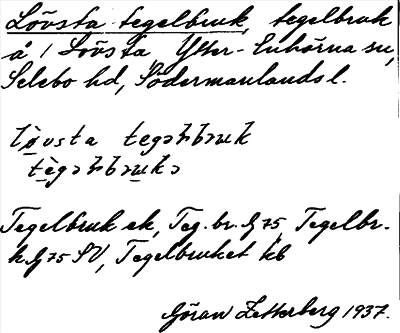 Lövsta tegelbruk, tegelbruk
å 1 Lövsta Ytter-Enhörna sn,
Selebo hd, Södermanlands l.
lø̀vsta tegəɫbrʉk
tègəɫbrʉkə
Tegelbruk ek, Teg.br. G 75, Tegelbr.
k G 75 SV, Tegelbruket kb
Göran Zetterberg 1937.